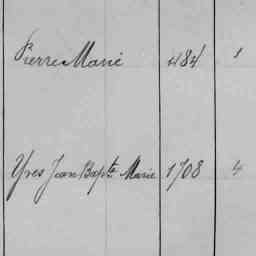 Pierre Marie 1184 1
Yves Jean Bapte Marie 1708 4